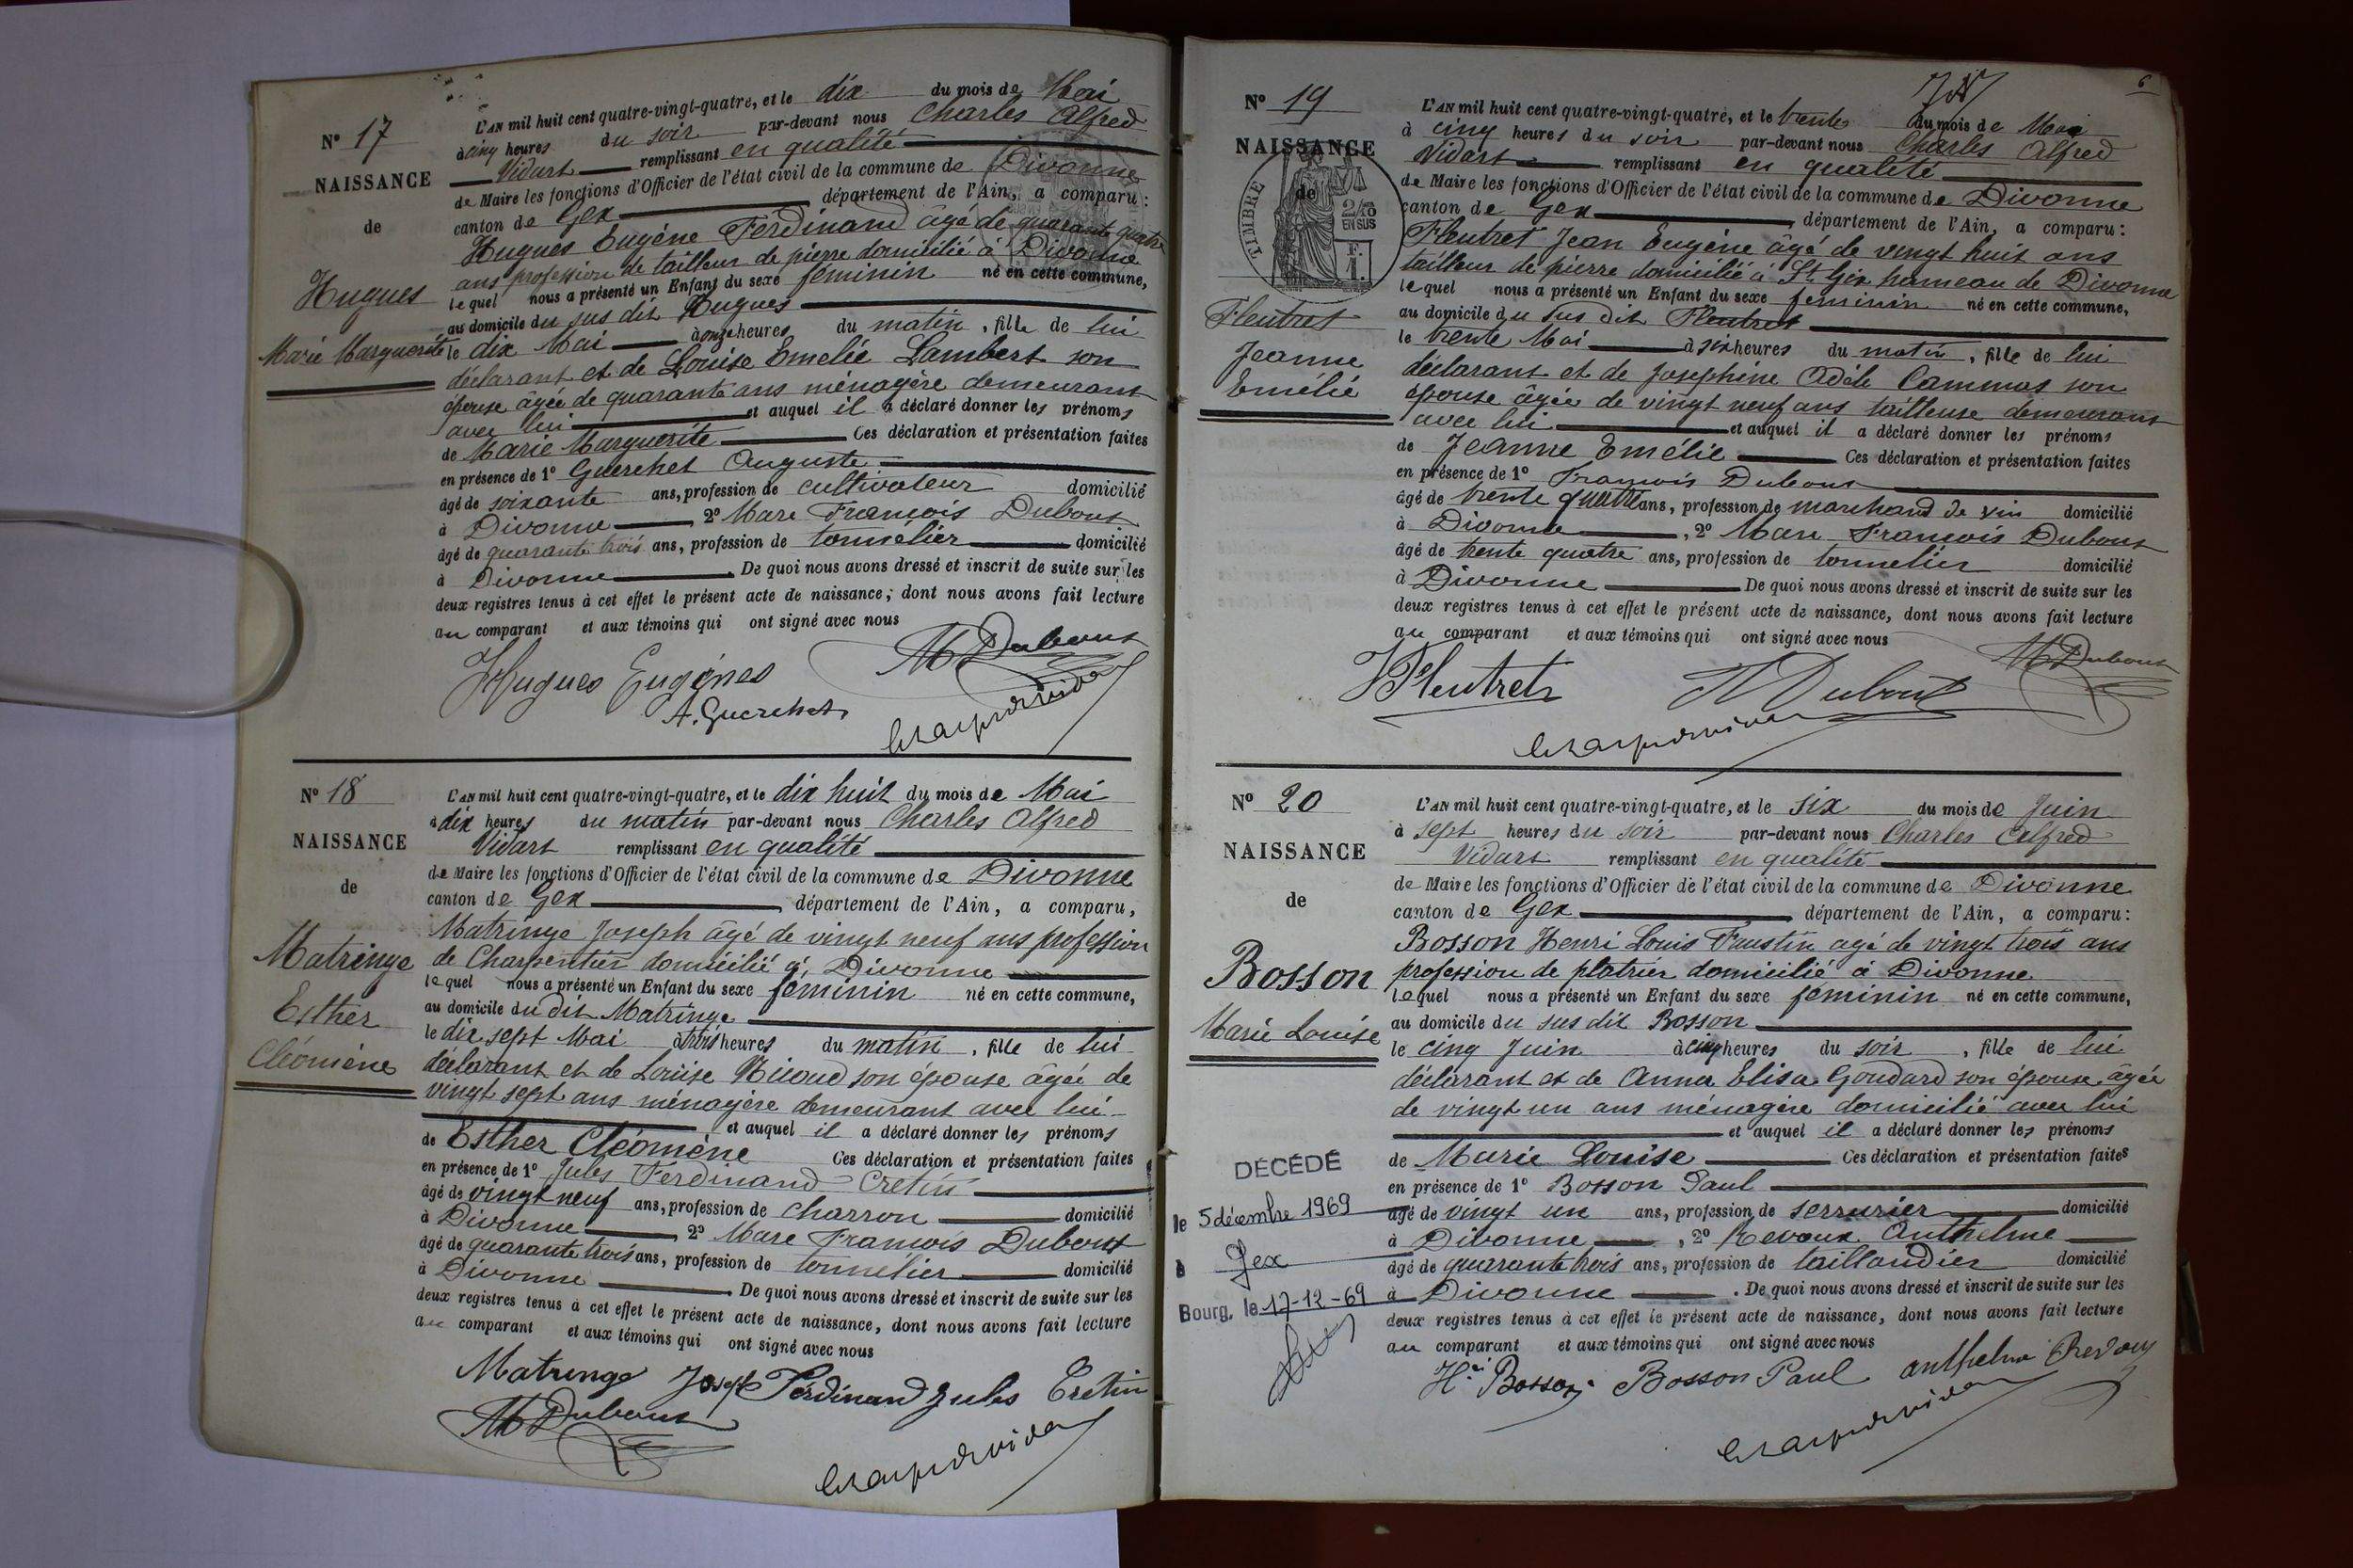 N° 17
NAISSANCE
de
Hugues
Marie Marguerite
L'AN mil huit cent quatre-vingt-quatre, et le dix du mois de Mai
à cinq heures du soir par-devant nous Charles Alfred
Vidart remplissant en qualité
de Maire les fonctions d'Officier de l'état civil de la commune de Divonne
canton de Gex département de l'Ain, a comparu :
Hugues Eugène Ferdinand âgé de quarante quatre
ans profession de tailleur de pierre domicilié à Divonne
lequel nous a présenté un Enfant du sexe féminin né en cette commune,
au domicile du sus dit Hugues
le dix Mai à onze heures du matin, fille de lui
déclarant et de Louise Emelie Lambert son
épouse âgée de quarante ans ménagère demeurant
avec lui et auquel il a déclaré donner les prénoms
de Marie Marguerite Ces déclaration et présentation faites
en présence de 1° Guerchet Auguste
âgé de soixante ans, profession de cultivateur domicilié
à Divonne, 2° Marc François Dubout
âgé de quarante trois ans, profession de tonnelier domicilié
à Divonne. De quoi nous avons dressé et inscrit de suite sur les
deux registres tenus à cet effet le présent acte de naissance, dont nous avons fait lecture
au comparant et aux témoins qui ont signé avec nous
Hugues Eugènes M Dubout
A. Guerchet
N° 18
NAISSANCE
de
Matringe
Esther
Cléomène
L'AN mil huit cent quatre-vingt-quatre, et le dix huit du mois de Mai
à dix heures du matin par-devant nous Charles Alfred
Vidart remplissant en qualité
de Maire les fonctions d'Officier de l'état civil de la commune de Divonne
canton de Gex, département de l'Ain, a comparu,
Matringe Joseph âgé de vingt neuf ans profession
de Charpentier domicilié à Divonne
lequel nous a présenté un Enfant du sexe féminin né en cette commune,
au domicile du dit Matringe
le dix sept Mai à trois heures du matin, fille de lui
déclarant et de Louise son épouse âgée de
vingt sept ans ménagère demeurant avec lui
et auquel il a déclaré donner les prénoms
de Esther Cléomène Ces déclaration et présentation faites
en présence de 1° Jules Ferdinand Cretin
âgé de vingt neuf ans, profession de charron domicilié
à Divonne 2° Marc François Dubout
âgé de quarante trois ans, profession de tonnelier domicilié
à Divonne. De quoi nous avons dressé et inscrit de suite sur les
deux registres tenus à cet effet le présent acte de naissance, dont nous avons fait lecture
au comparant et aux témoins qui ont signé avec nous
Matringe Joseph Ferdinand Jules Cretin
M Dubout
6
N° 19
NAISSANCE
de
TIMBRE
EN SUS
Fleutret
Jeanne
Emélie
L'AN mil huit cent quatre-vingt-quatre, et le trente du mois de Mai
à cinq heures du soir par-devant nous Charles Alfred
Vidart remplissant en qualité
de Maire les fonctions d'Officier de l'état civil de la commune de Divonne
canton de Gex, département de l'Ain, a comparu :
Fleutret Jean Eugène âgé de vingt huit ans
tailleur de pierre domicilié à St Gix hameau de Divonne
lequel nous a présenté un Enfant du sexe féminin né en cette commune,
au domicile du sus dit Fleutret
le trente Mai à six heures du matin, fille de lui
déclarant et de Josephine Adèle Cammas son
épouse âgée de vingt neuf ans tailleuse demeurant
avec lui et auquel il a déclaré donner les prénoms
de Jeanne Emélie Ces déclaration et présentation faites
en présence de 1° François Dubout
âgé de trente quatre ans, profession de marchand de vin domicilié
à Divonne, 2° Marc François Dubout
âgé de trente quatre ans, profession de tonnelier domicilié
à Divonne De quoi nous avons dressé et inscrit de suite sur les
deux registres tenus à cet effet le présent acte de naissance, dont nous avons fait lecture
au comparant et aux témoins qui ont signé avec nous
Fleutret Dubout M Dubout
N° 20
NAISSANCE
de
Bosson
Marie Louise
DÉCÉDÉ
le 5 décembre 1969
à Gex
Bourg, le 17-12-69
L'AN mil huit cent quatre-vingt-quatre, et le six du mois de Juin
à sept heures du soir par-devant nous Charles Alfred
Vidart remplissant en qualité
de Maire les fonctions d'Officier de l'état civil de la commune de Divonne
canton de Gex, département de l'Ain, a comparu :
Bosson Henri Louis Faustin agé de vingt trois ans
profession de platrier domicilié à Divonne
lequel nous a présenté un Enfant du sexe féminin né en cette commune,
au domicile du sus dit Bosson
le cinq Juin à cinq heures du soir, fille de lui
déclarant et de Anna Elisa Goudard son épouse âgée
de vingt un ans ménagère domicilié avec lui
et auquel il a déclaré donner les prénoms
de Marie Louise Ces déclaration et présentation faites
en présence de 1° Bosson Paul
âgé de vingt un ans, profession de serrurier domicilié
à Divonne, 2° Revoux Anthelme
âgé de quarante trois ans, profession de taillandier domicilié
à Divonne. De quoi nous avons dressé et inscrit de suite sur les
deux registres tenus à cet effet le présent acte de naissance, dont nous avons fait lecture
au comparant et aux témoins qui ont signé avec nous
Hri Bosson Bosson Paul anthelme Revoux